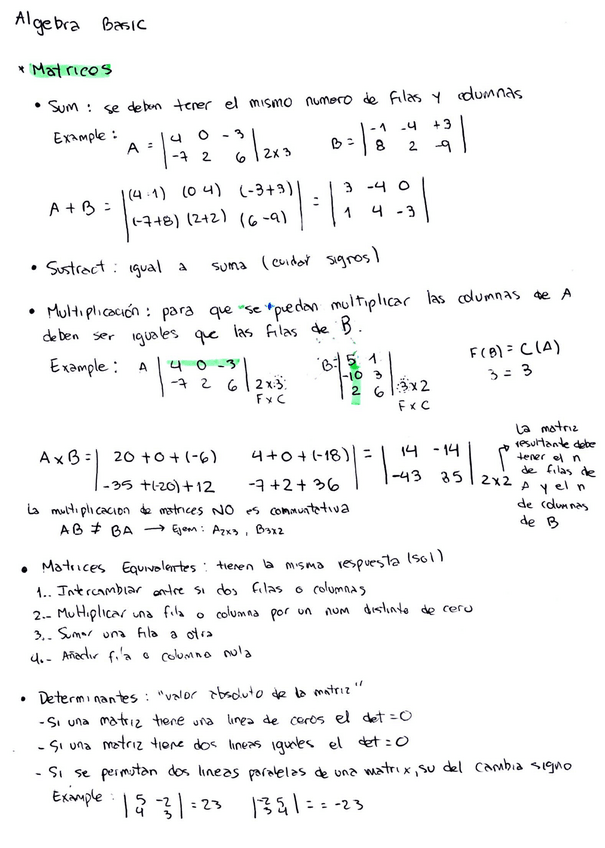 Algebra Basic
* Matrices
• Sum : se deben tener el mismo numero de filas y columnas
Example : A = | 4 0 -3 | B = | -1 -4 +3 |
| -7 2 6 | 2x3 | 8 2 -9 |
A + B = | (4-1) (0 4) (-3+3) | = | 3 -4 0 |
| (-7+8) (2+2) (6-9) | | 1 4 -3 |
• Sustract : igual a suma (cuidar signos)
• Multiplicación : para que se puedan multiplicar las columnas de A
deben ser iguales que las filas de B.
Example : A | 4 0 -3 | B = | 5 1 | F(B) = C(A)
| -7 2 6 | 2x3 | -10 3 | 3 = 3
FxC | 2 6 | 3x2
FxC
A x B = | 20 + 0 + (-6) 4 + 0 + (-18) | = | 14 -14 |
| -35 + (-20) + 12 -7 + 2 + 36 | | -43 35 | 2x2
La matriz
resultante debe
tener el n
de filas de
A y el n
de columnas
de B
La multiplicacion de matrices NO es conmuntativa
AB ≠ BA → Ejem : A2x3 , B3x2
• Matrices Equivalentes : tienen la misma respuesta (sol)
1.- Intercambiar entre si dos filas o columnas
2.- Multiplicar una fila o columna por un num distinto de cero
3.- Sumar una fila a otra
4.- Añadir fila o columna nula
• Determinantes : "valor absoluto de la matriz"
- Si una matriz tiene una linea de ceros el det = 0
- Si una matriz tiene dos lineas iguales el det = 0
- Si se permutan dos lineas paralelas de una matrix, su det cambia signo
Example : | 5 -2 | = 23 | -2 5 | = = -23
| 4 3 | | 3 4 |